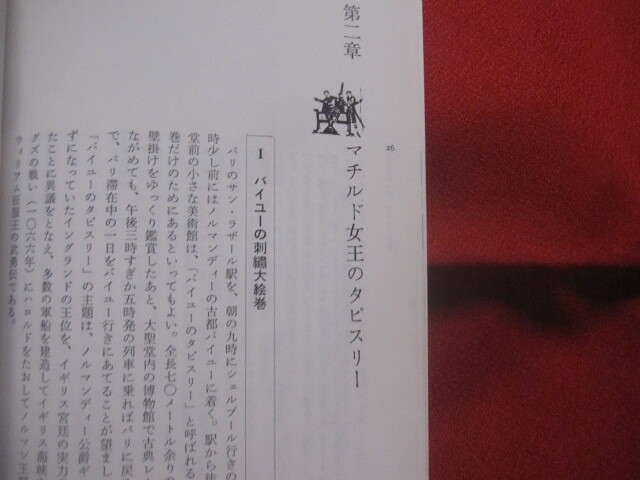 26
第二章
マチルド女王のタピスリー
I バイユーの刺繡大絵巻
パリのサン・ラザール駅を、朝の九時にシェルブール行きの
時少し前にはノルマンディーの古都バイユーに着く。駅から徒
堂前の小さな美術館は、「バイユーのタピスリー」と呼ばれる
巻だけのためにあるといってもよい。全長七〇メートル余りの
壁掛けをゆっくり鑑賞したあと、大聖堂内の博物館で古典レ
ながめても、午後三時すぎか五時発の列車に乗ればパリに戻
で、パリ滞在中の一日をバイユー行きにあてることが望まし
「バイユーのタピスリー」の主題は、ノルマンディー公爵ギ
ずになっていたイングランドの王位を、イギリス宮廷の実力
たことに異議をとなえ、多数の軍船を建造してイギリス海峡
グズの戦い(一〇六六年)にハロルドをたおしてノルマン王朝
ウィリアム征服王の武勇伝である。